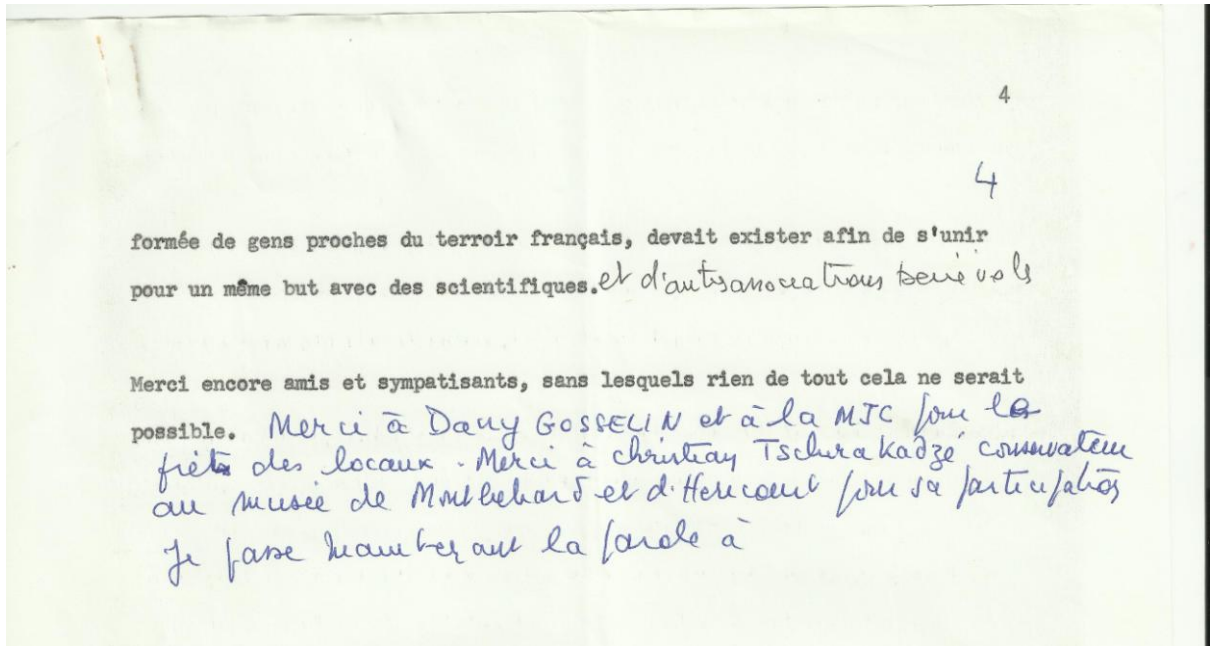 4
4
formée de gens proches du terroir français, devait exister afin de s'unir
pour un même but avec des scientifiques. et d'autres associations bénévoles
Merci encore amis et sympatisants, sans lesquels rien de tout cela ne serait
possible. Merci à Dany GOSSELIN et à la MJC pour le
prêt des locaux. Merci à Christian Tschirakadzé conservateur
au musée de Montbeliard et d'Hericourt pour sa participation
Je passe maintenant la parole à